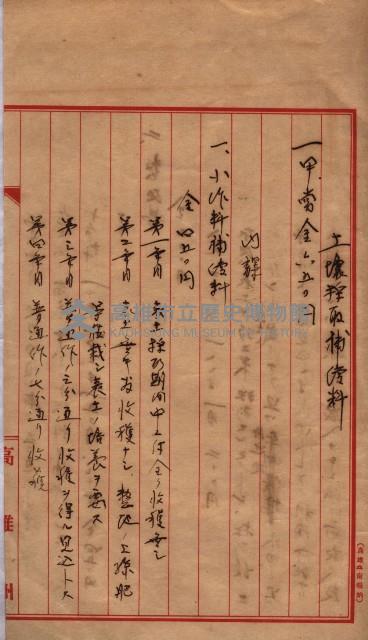 土壌採取補償料
一甲當金六五〇円
内譯
一、小作料補償料
金四五〇円
第一季目 採取期間中ニ付全ク收穫無シ
第二季目 收穫ナシ、整地ノ上綠肥
ヲ栽シ表土ノ培養ヲ要ス
第三季目 普通作ノ三分通リ收穫ヲ得ル見込トス
第四季目 普通作ノ七分通リ收穫
高雄州
高雄市立歷史博物館
KAOHSIUNG MUSEUM OF HISTORY